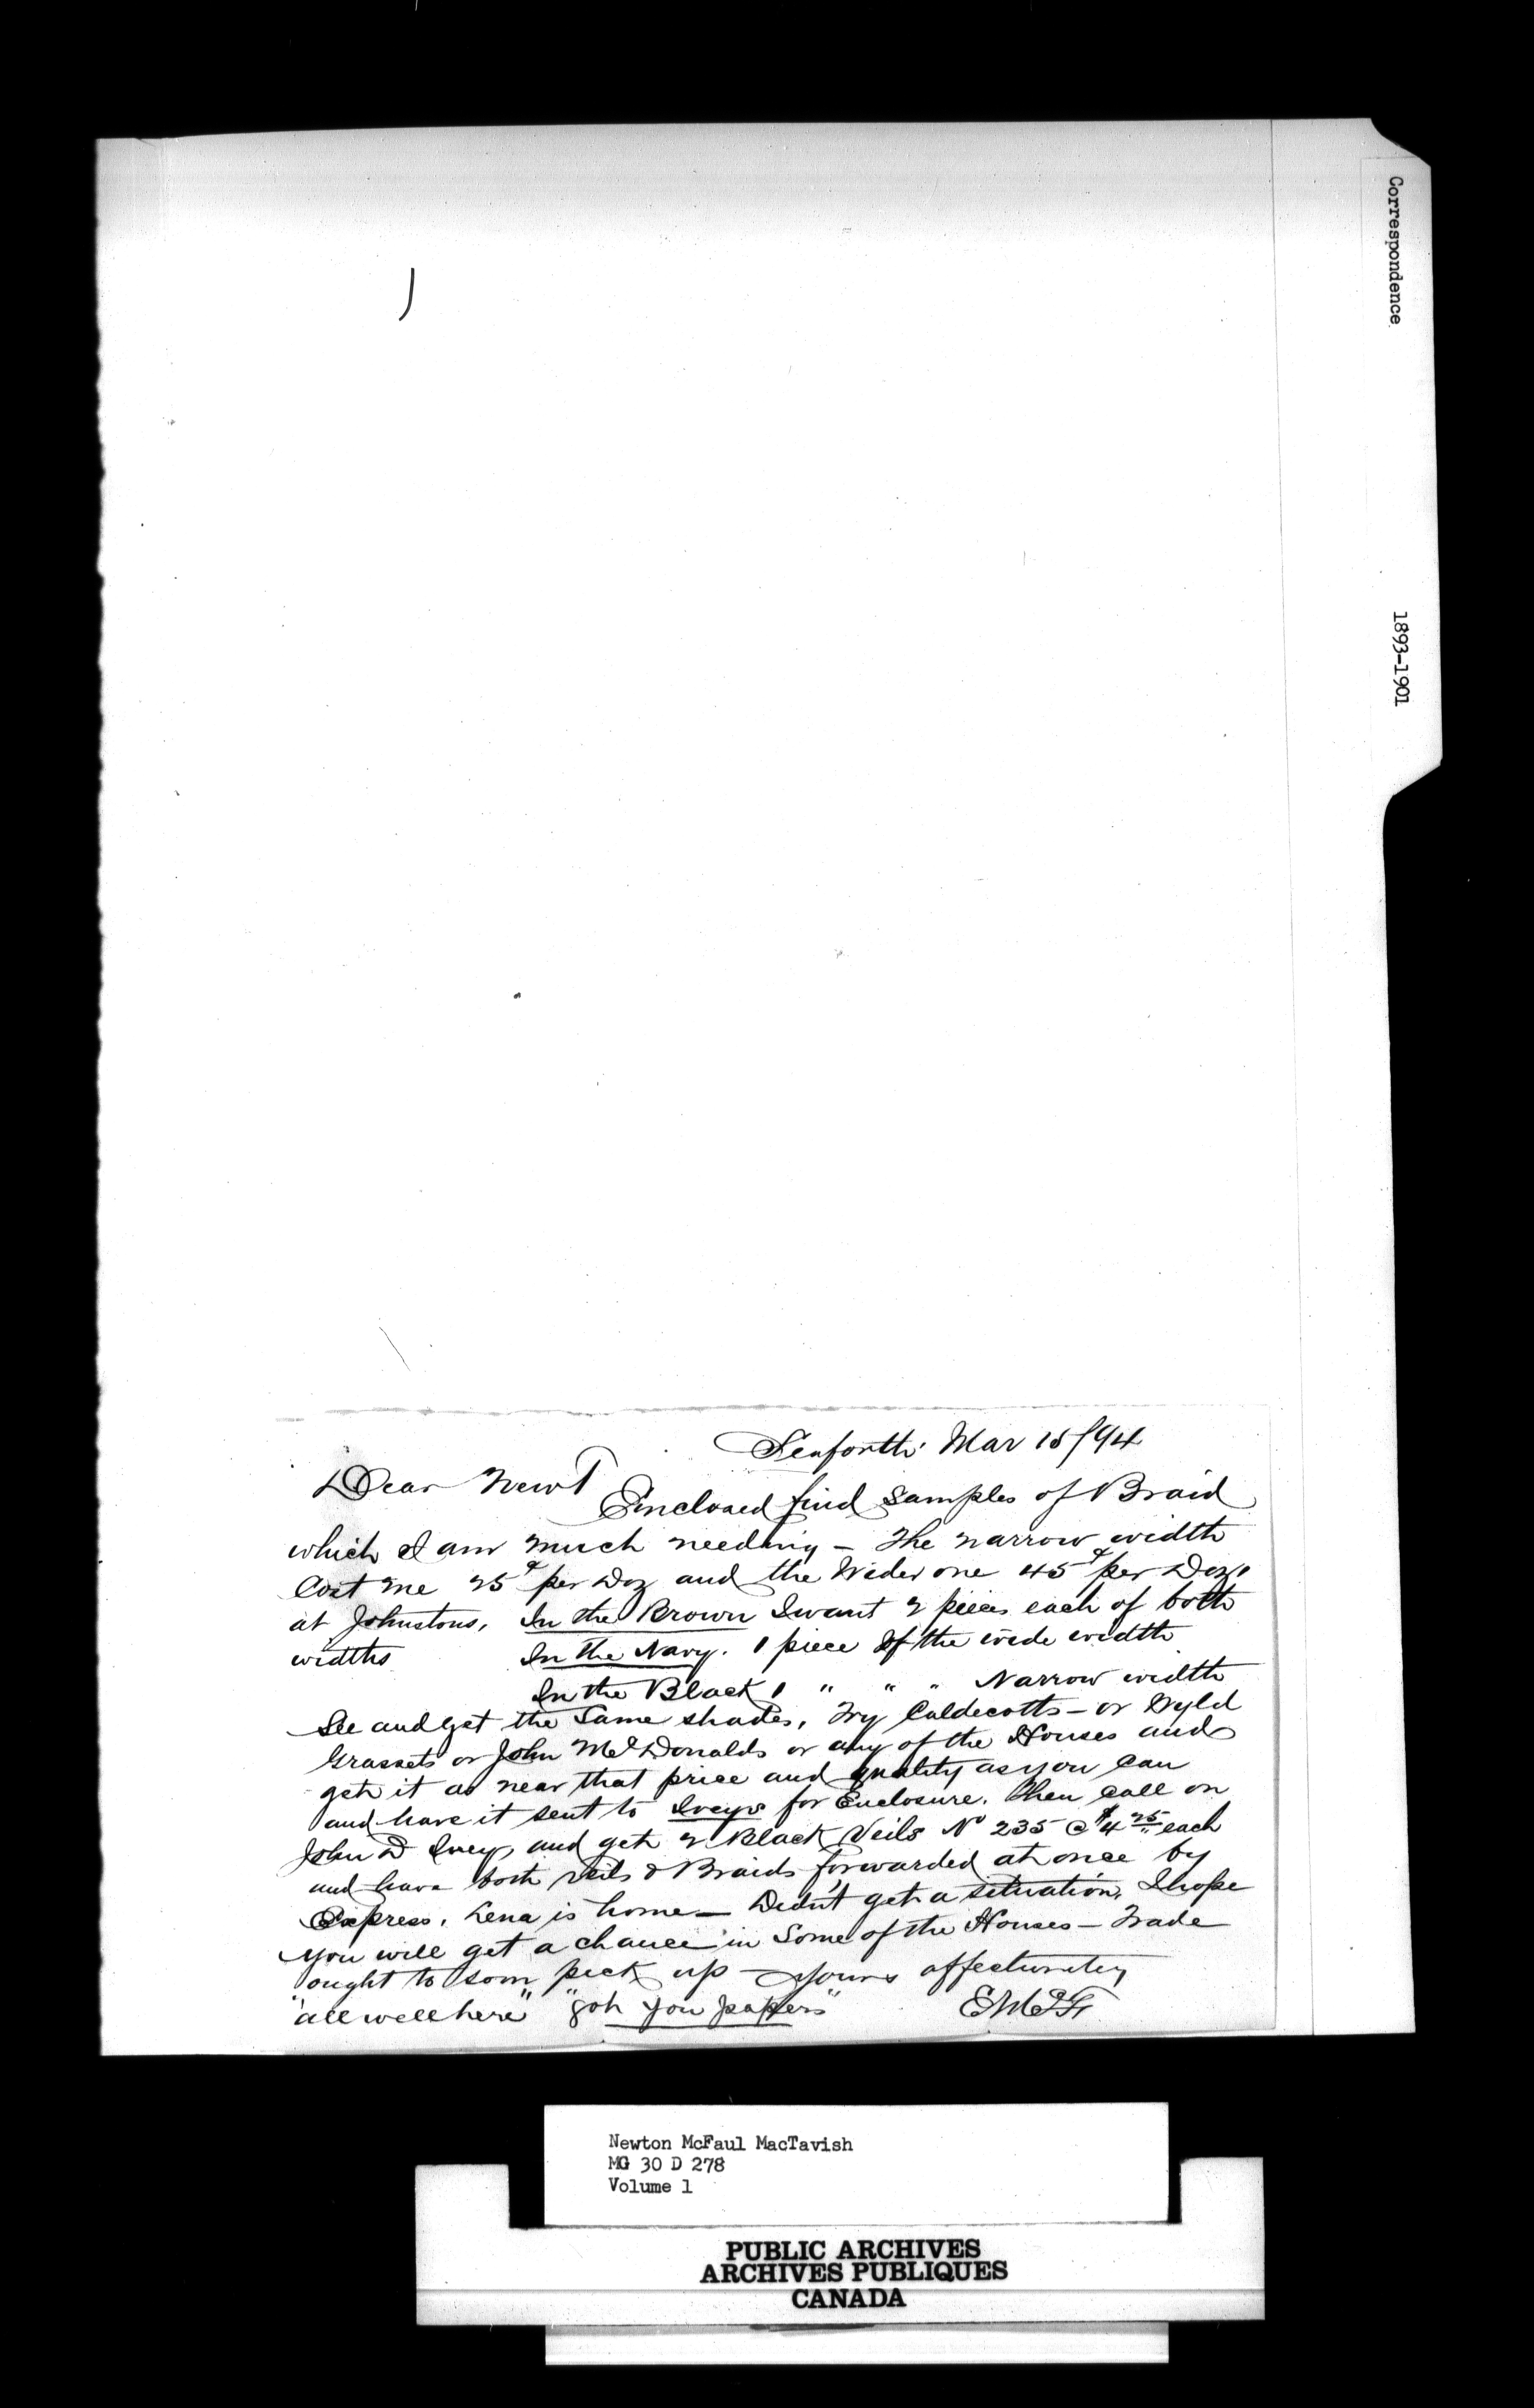 Correspondence
1893-1901
Seaforth Mar 15/94
Dear Newt
Enclosed find samples of Braid
which I am much needing – The narrow width
Cost me 25¢ per Doz and the Wider one 45¢ per Doz,
at Johnstons, In the Brown I want 2 pieces each of both
widths In the Navy. 1 piece of the wide width
In the Black 1 " " " Narrow width
See and get the same shades, Try Caldecotts – or Wyld
Grassets or John McDonalds or any of the Houses and
get it as near that price and quality as you can
and have it sent to Iveys for Enclosure. Then call on
John D Ivey, and get 2 Black Veils No 235 @ $4 25 each
and have both veils & Braids forwarded at once by
Express. Lena is home – Didn't get a situation, I hope
you will get a chance in Some of the Houses – Trade
ought to soon pick up – Yours affectionately
"all well here" "got you papers" E McF
Newton McFaul MacTavish
MG 30 D 278
Volume 1
PUBLIC ARCHIVES
ARCHIVES PUBLIQUES
CANADA